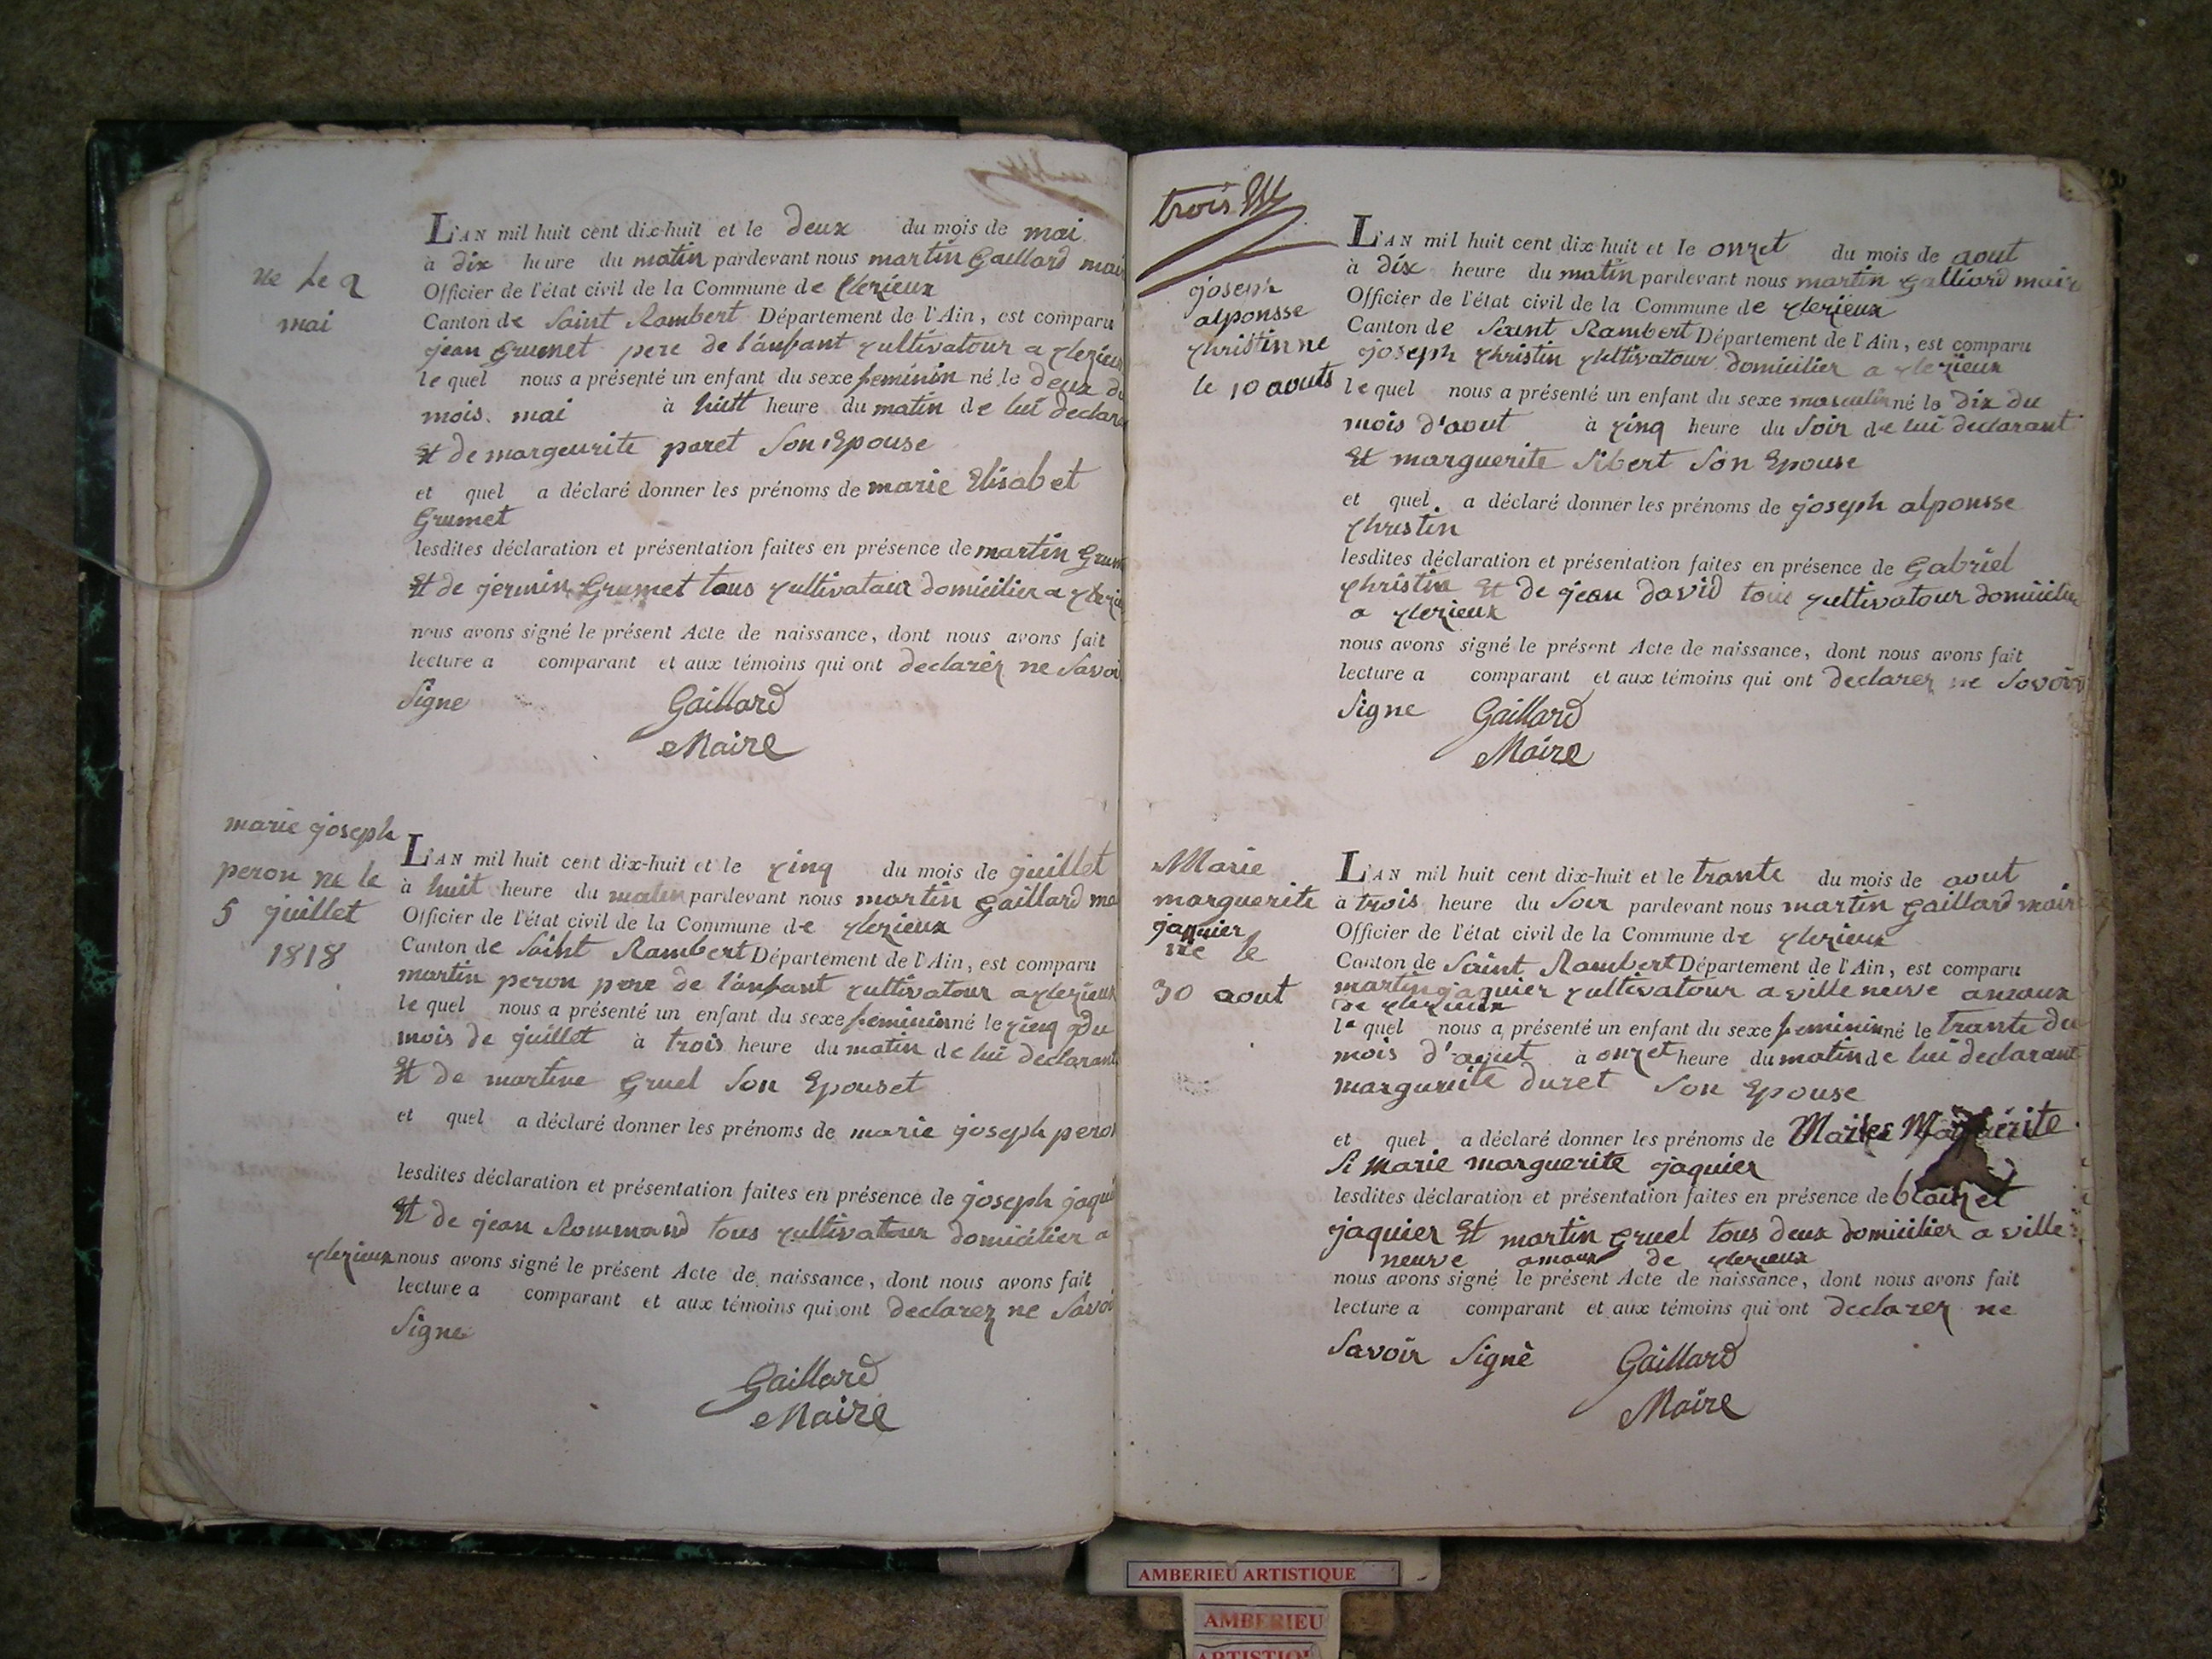 ne le 2
mai
L'AN mil huit cent dix-huit et le deux du mois de mai
à dix heure du matin pardevant nous martin Gaillard mai
Officier de l'état civil de la Commune de Clezieux
Canton de Saint Rambert Département de l'Ain, est comparu
jean Grumet pere de l'anfant cultivatour a clezieu
le quel nous a présenté un enfant du sexe feminin né le deux du
mois mai à huit heure du matin de lui declaran
Et de margeurite paret Son Epouse
et quel a déclaré donner les prénoms de marie Elisabet
Grumet
lesdites déclaration et présentation faites en présence de martin Grum
Et de jermin Grumet tous cultivataur domicilier a clezieu
nous avons signé le présent Acte de naissance, dont nous avons fait
lecture a comparant et aux témoins qui ont declarez ne Savoi
Signe Gaillard
Maire
marie joseph
peron ne le
5 juillet
1818
L'AN mil huit cent dix-huit et le cinq du mois de juillet
à huit heure du matin pardevant nous martin Gaillard ma
Officier de l'état civil de la Commune de clezieux
Canton de Saint Rambert Département de l'Ain, est comparu
martin peron pere de l'anfant cultivatour a clezieux
le quel nous a présenté un enfant du sexe feminin né le cinq du
mois de juillet à trois heure du matin de lui declarant
Et de martine Gruel Son Epouset
et quel a déclaré donner les prénoms de marie joseph peron
lesdites déclaration et présentation faites en présence de joseph jaqui
Et de jean Rommand tous cultivatour domicilier a
clezieux nous avons signé le présent Acte de naissance, dont nous avons fait
lecture a comparant et aux témoins qui ont declarez ne Savoi
Signe
Gaillard
Maire
trois
joseph
alponsse
christinne
le 10 aouts
L'AN mil huit cent dix-huit et le onzet du mois de aout
à dix heure du matin pardevant nous martin galliard maire
Officier de l'état civil de la Commune de clezieux
Canton de Saint Rambert Département de l'Ain, est comparu
joseph christin cultivatour domicilier a clezieux
le quel nous a présenté un enfant du sexe masculin né le dix du
mois d'aout à cinq heure du Soir de lui declarant
Et marguerite Sibert Son Epouse
et quel a déclaré donner les prénoms de joseph alponsse
christin
lesdites déclaration et présentation faites en présence de Gabriel
christin Et de jean david tous cultivatour domicilier
a clezieux
nous avons signé le présent Acte de naissance, dont nous avons fait
lecture a comparant et aux témoins qui ont declarez ne Savoir
Signe Gaillard
Maire
Marie
marguerite
jaquier
né le
30 aout
L'AN mil huit cent dix-huit et le trante du mois de aout
à trois heure du Soir pardevant nous martin Gaillard maire
Officier de l'état civil de la Commune de clezieux
Canton de Saint Rambert Département de l'Ain, est comparu
martin jaquier cultivatour a ville neuve amaux
de clezieux
le quel nous a présenté un enfant du sexe feminin né le trante du
mois d'aout à onzet heure du matin de lui declarant
marguerite duret Son Epouse
et quel a déclaré donner les prénoms de Marguerite
Si marie marguerite jaquier
lesdites déclaration et présentation faites en présence de
jaquier Et martin Gruel tous deux domicilier a ville
neuve amaux de clezieux
nous avons signé le présent Acte de naissance, dont nous avons fait
lecture a comparant et aux témoins qui ont declarez ne
Savoir Signè Gaillard
Maire
AMBERIEU ARTISTIQUE
AMBERIEU
ARTISTIQUE